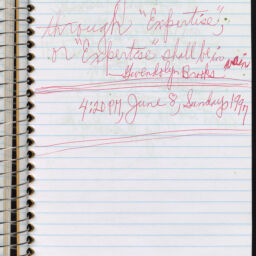 through "Expertise";
or "Expertise" shall be in vain
Gwendolyn Brooks
4:20 PM, June 8, Sunday, 1997